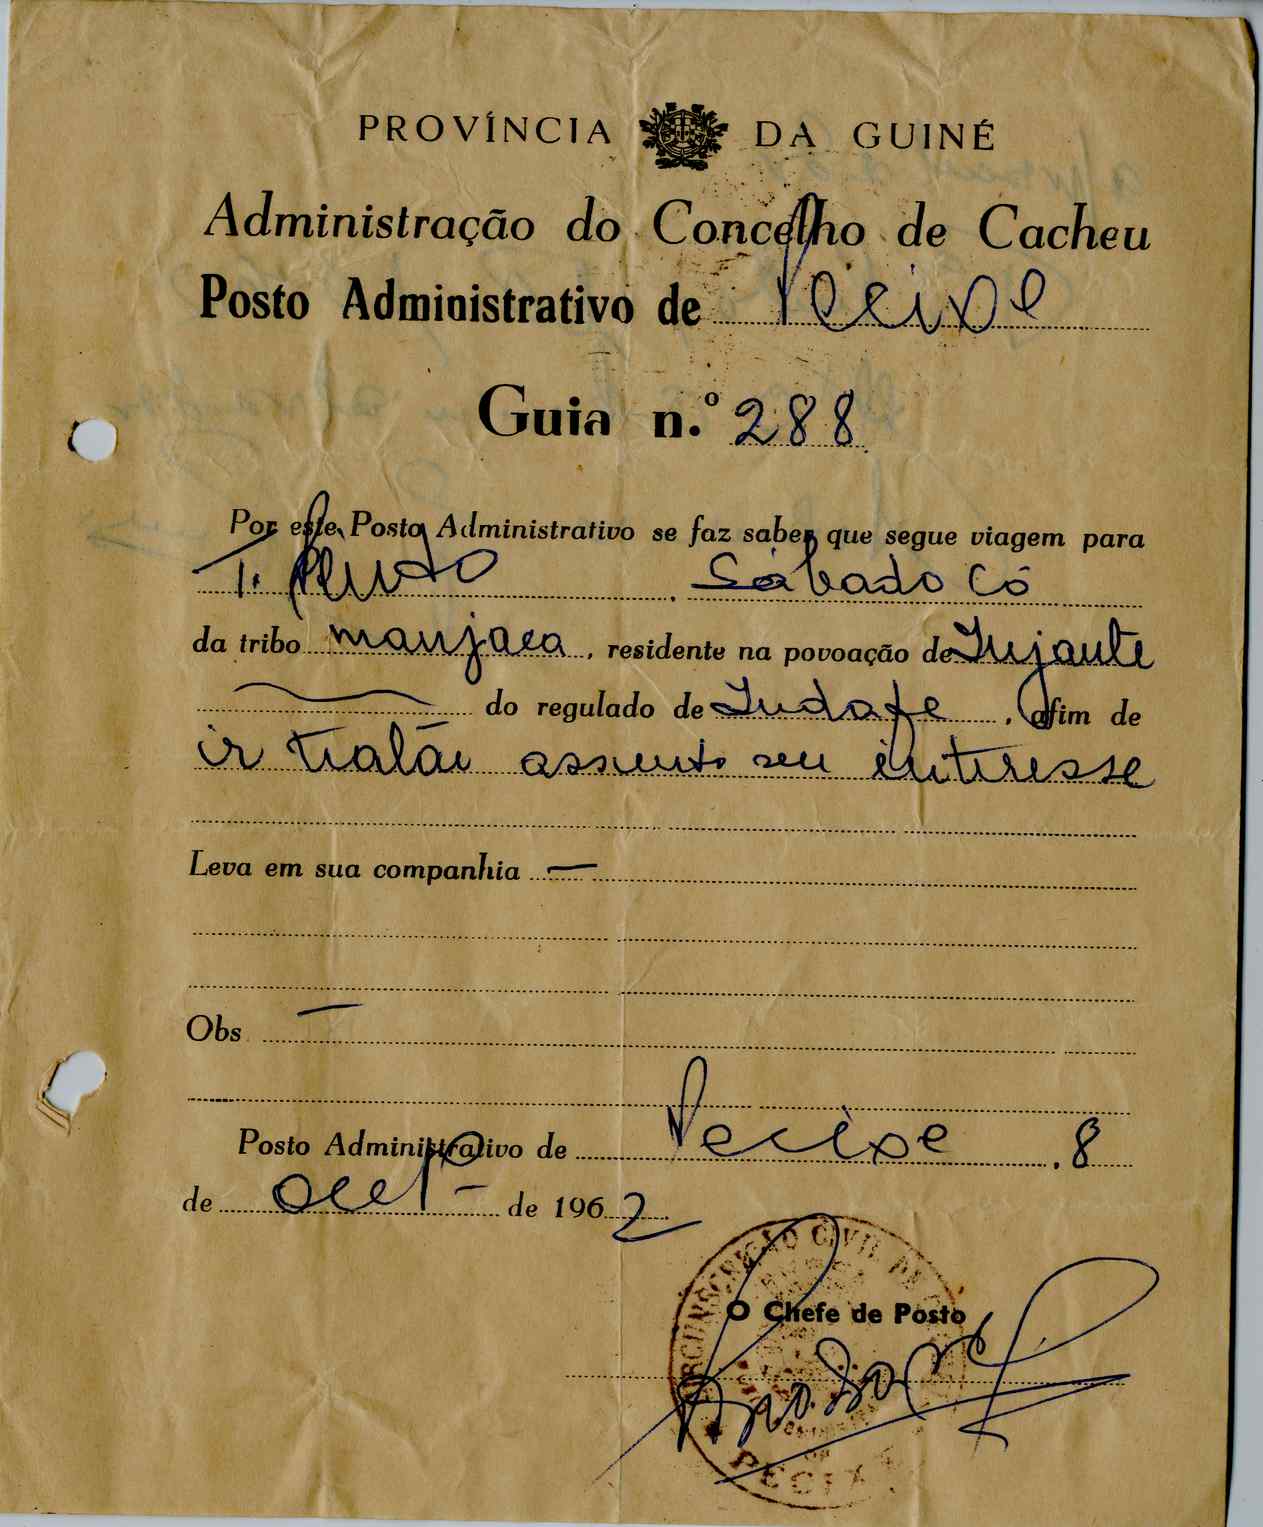 PROVÍNCIA DA GUINÉ
Administração do Concelho de Cacheu
Posto Administrativo de Pecixe
Guia n.º 288
Por este Posto Administrativo se faz saber que segue viagem para
T. Pinto, Sábado Có
da tribo manjaca, residente na povoação de
do regulado de Indafe, afim de
ir tratár assunto seu interesse
Leva em sua companhia —
Obs —
Posto Administrativo de Pecixe, 8
de outº - de 1962
CIRCUNSCRIÇÃO CIVIL DE
O Chefe de Posto
PECIXE